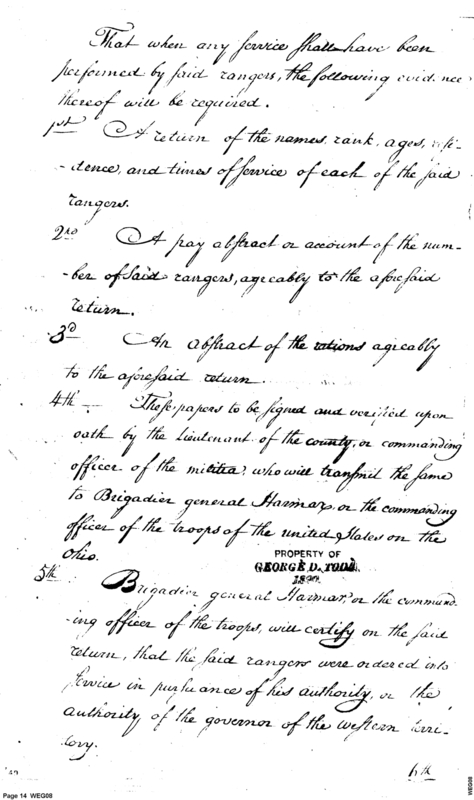 That when any service shall have been
performed by said rangers, the following evidence
thereof will be required.
1st A return of the names, rank, ages, resi-
-dence, and times of service of each of the said
rangers.
2nd A pay abstract or account of the num-
-ber of said rangers, agreably to the aforesaid
return.
3d An abstract of the rations agreably
to the aforesaid return.
4th These papers to be signed and verified upon
oath by the lieutenant of the county, or commanding
officer of the militia, who will transmit the same
to Brigadier general Harmar, or the commanding
officer of the troops of the united States on the
Ohio.
PROPERTY OF
GEORGE D. TODD,
5th Brigadier general Harmar, or the command-
-ing officer of the troops, will certify on the said
return, that the said rangers were ordered into
service in pursuance of his authority, or the
authority of the governor of the western terri-
-tory.
6th
Page 14 WEG08
WEG08